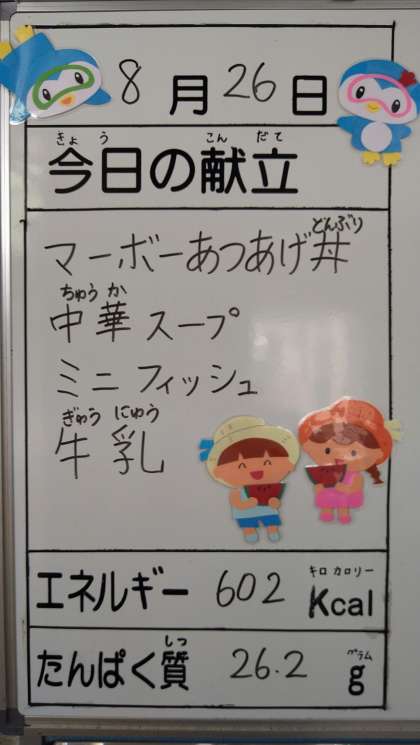 8月26日
きょう こんだて
今日の献立
どんぶり
マーボーあつあげ丼
ちゅうか
中華スープ
ミニフィッシュ
ぎゅうにゅう
牛乳
キロカロリー
エネルギー 602 Kcal
しつ グラム
たんぱく質 26.2 g